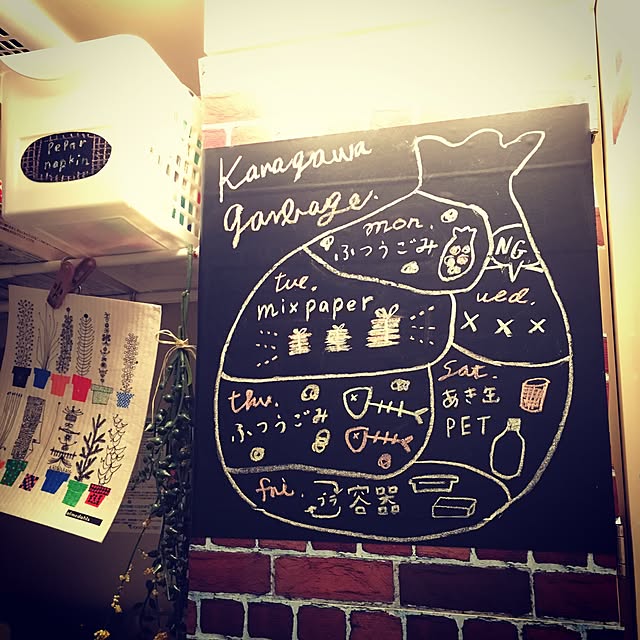 PePar
napkin
Kanagawa
garbage.
mon.
ふつうごみ
NG
tue.
mixpaper
wed.
× × ×
thu.
ふつうごみ
Sat.
あき缶
PET
fri.
プラ容器
almedahls